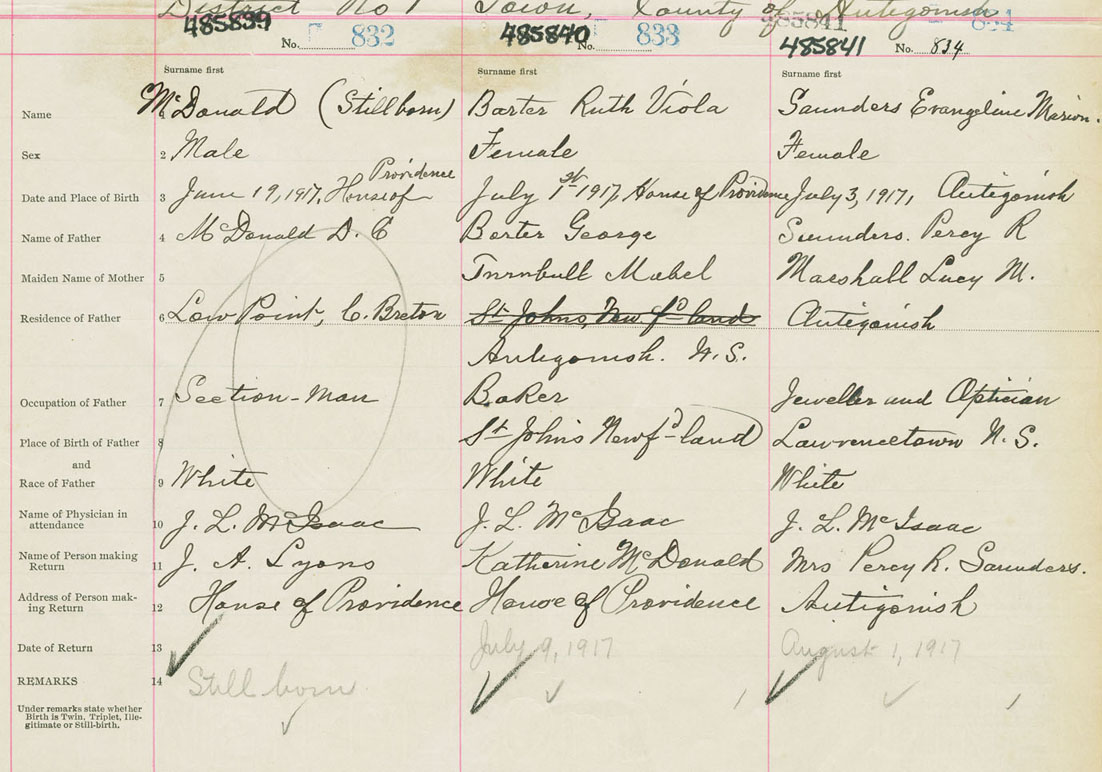 District No 1 Town, County of Antigonish
485839 485840 485841 834
No. 832 No. 833 485841 No. 834
Surname first Surname first Surname first
Name 1 McDonald (Stillborn) Barter Ruth Viola Saunders Evangeline Marion.
Sex 2 Male Female Female
Providence
Date and Place of Birth 3 June 19, 1917, House of July 1st 1917, House of Providence July 3, 1917, Antigonish
Name of Father 4 McDonald D. C Barter George Saunders. Percy R
Maiden Name of Mother 5 Turnbull Mabel Marshall Lucy M.
Residence of Father 6 Low Point, C. Breton St Johns, New fd land Antigonish
Antigonish. N. S.
Occupation of Father 7 Section-Man Baker Jeweller and Optician
Place of Birth of Father 8 St John's Newfd-land Lawrencetown N. S.
and
Race of Father 9 White White White
Name of Physician in attendance 10 J. L. McIsaac J. L. McIsaac J. L. McIsaac
Name of Person making Return 11 J. A. Lyons Katherine McDonald Mrs Percy R. Saunders.
Address of Person mak-ing Return 12 House of Providence House of Providence Antigonish
Date of Return 13 July 9, 1917 August 1, 1917
REMARKS 14 Still born
Under remarks state whether
Birth is Twin, Triplet, Ille-
gitimate or Still-birth.